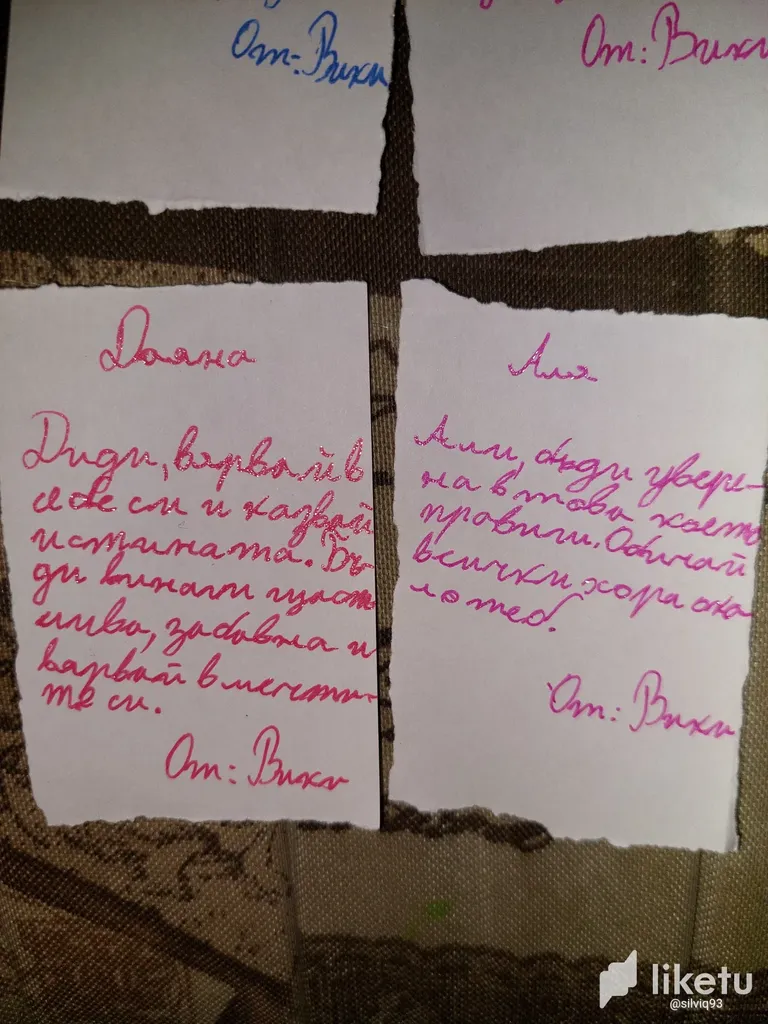 От: Вики
От: Вики
Даяна
Диди, вярвай в
себе си и казвай
истината. Бъ-
ди винаги щаст
лива, забавна и
вярвай в мечти-
те си.
От: Вики
Аля
Али, бъди увере-
на в това което
правиш. Обичай
всички хора око
ло теб.
От: Вики
liketu
@silviq93